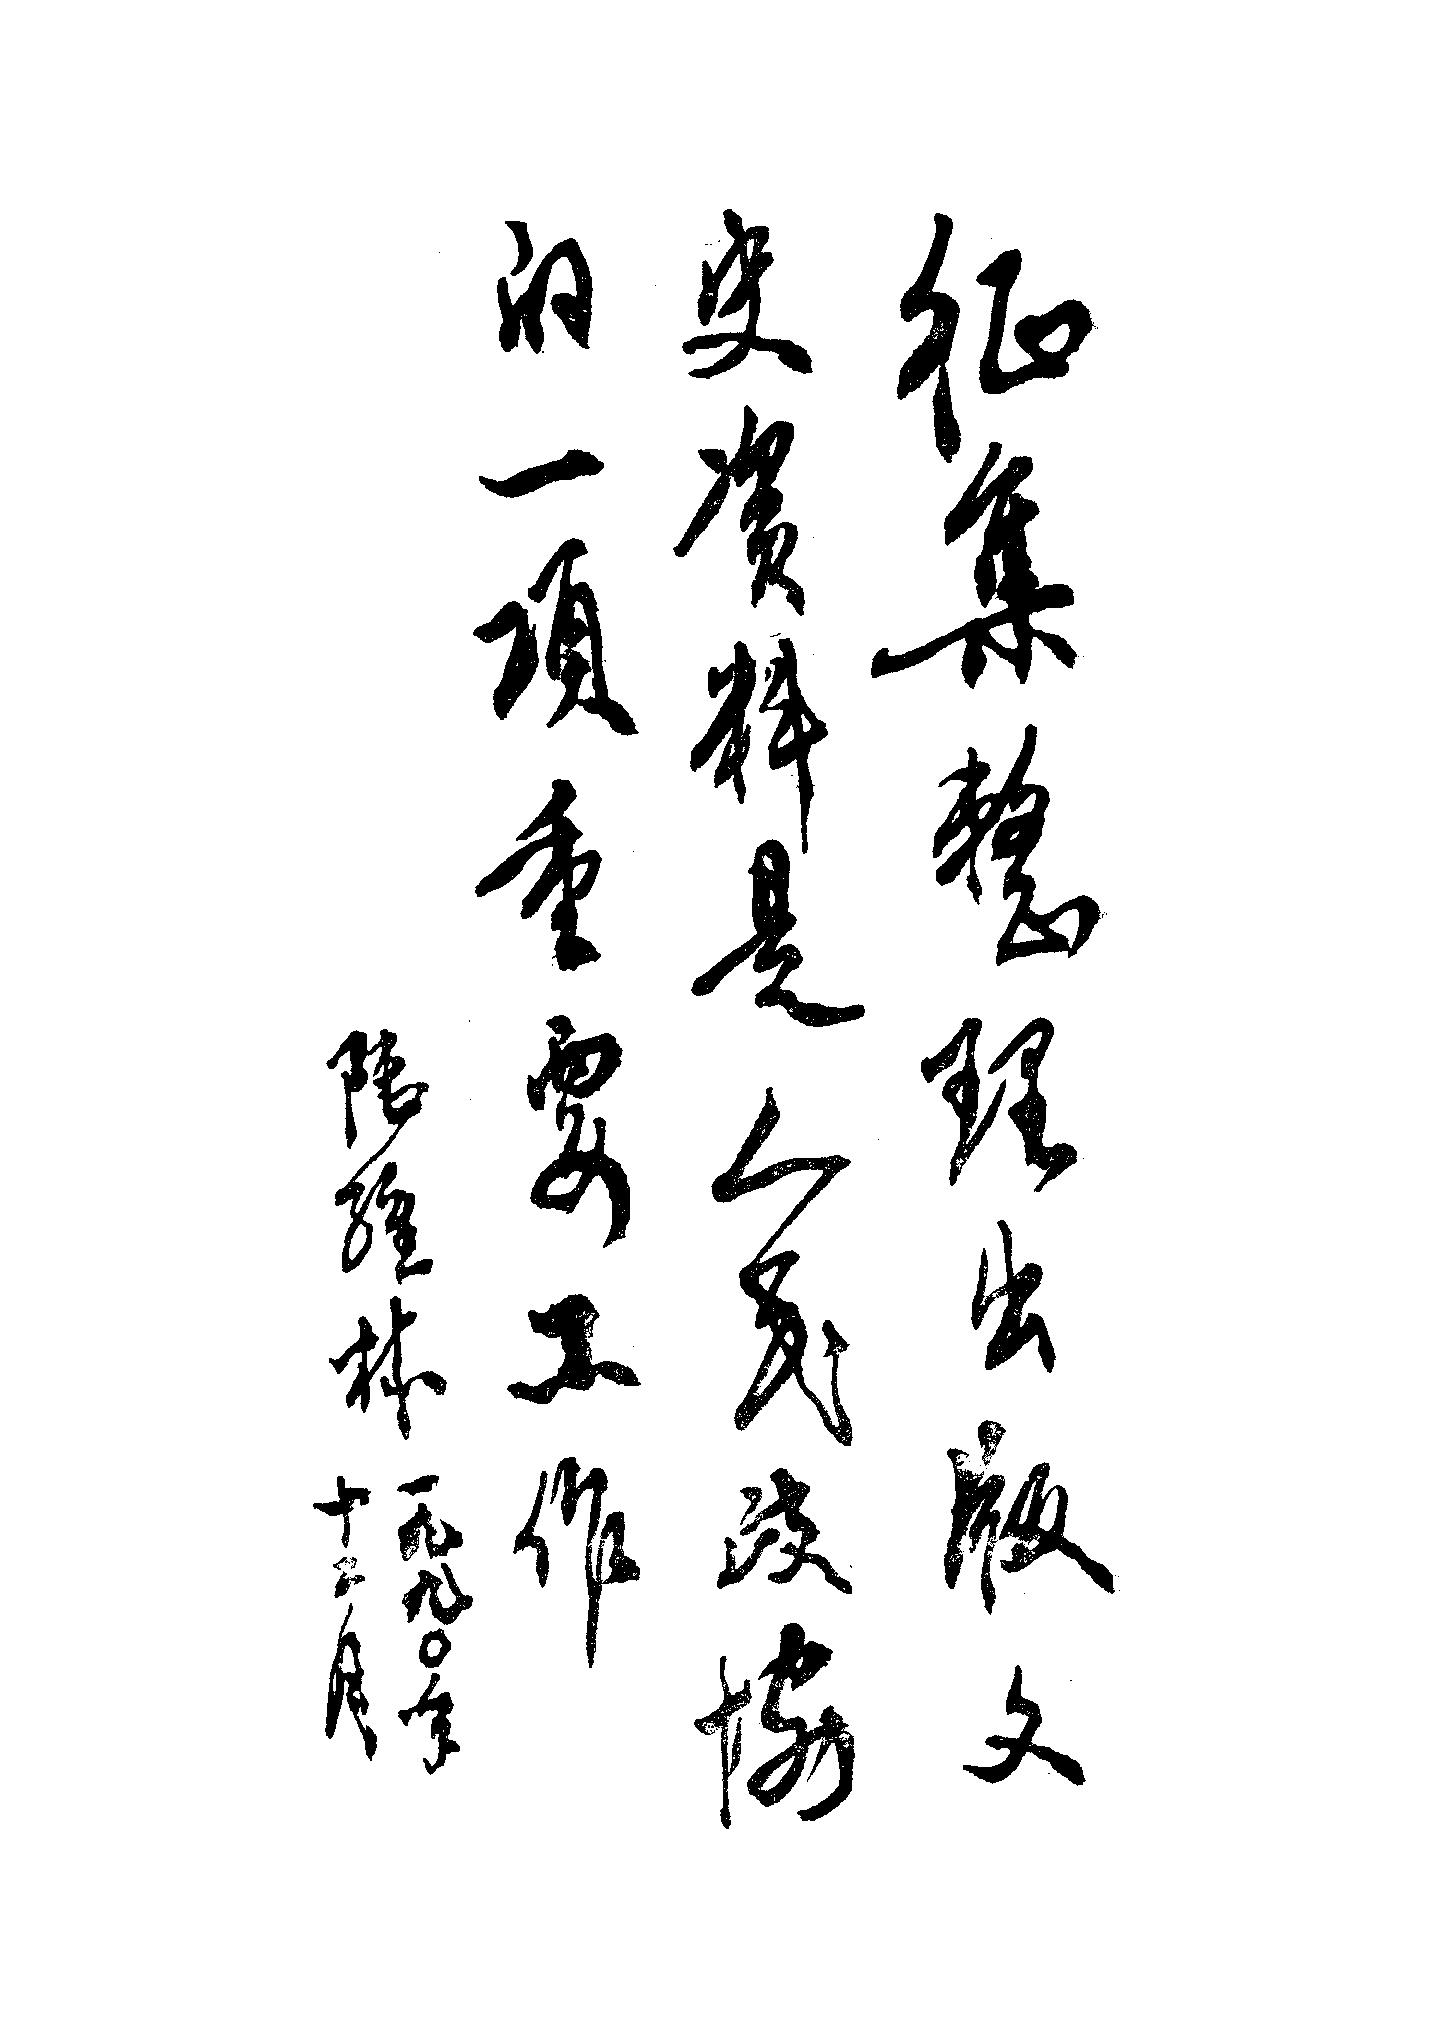 征集整理出版文
史资料是人民政协
的一项重要工作
陈
一九九〇年
十二月